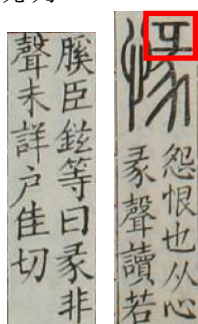 怨恨也从心
彖聲讀若
膎臣鉉等曰彖非
聲未詳户佳切